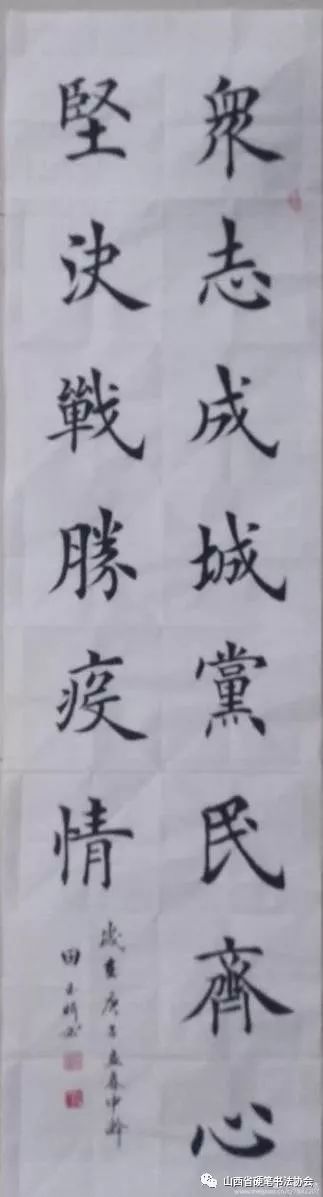 衆志成城黨民齊心
堅決戰勝疫情
歲在庚子立春中幹
田
山西省硬笔书法协会